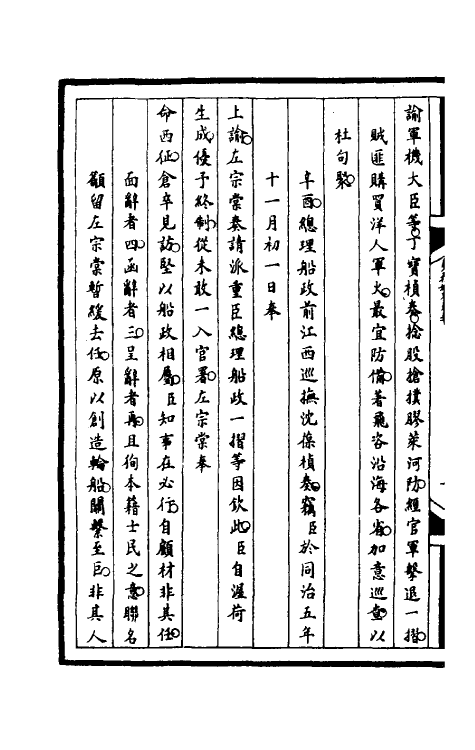 諭軍機大臣等丁寶楨奏捻股搶撲膠萊河防經官軍擊退一摺
賊匪購買洋人軍火最宜防備著飛咨沿海各省加意巡查以
杜勾槩
辛酉總理船政前江西巡撫沈葆楨奏竊臣於同治五年
十一月初一日奉
上諭左宗棠奏請派重臣總理船政一摺等因欽此臣自渥荷
生成優予終制從未敢一入官署左宗棠奉
命西征倉卒見訪堅以船政相屬臣知事在必行自顧材非其任
面辭者四函辭者三呈辭者再且徇本藉士民之意聯名
籲留左宗棠暫緩去任原以創造輪船關繫至巨非其人